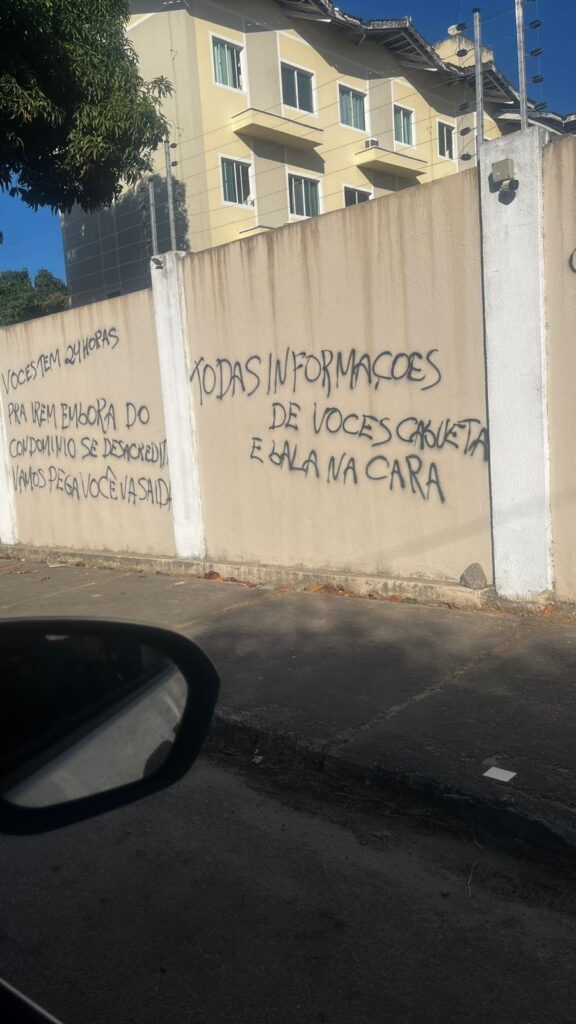 VOCES TEM 24 HORAS
PRA IREM EMBORA DO
CONDOMINIO SE DESACREDIT
VAMOS PEGA VOCÊ NA SAID
TODAS INFORMAÇOES
DE VOCES CAGUETA
E bALA NA CARA